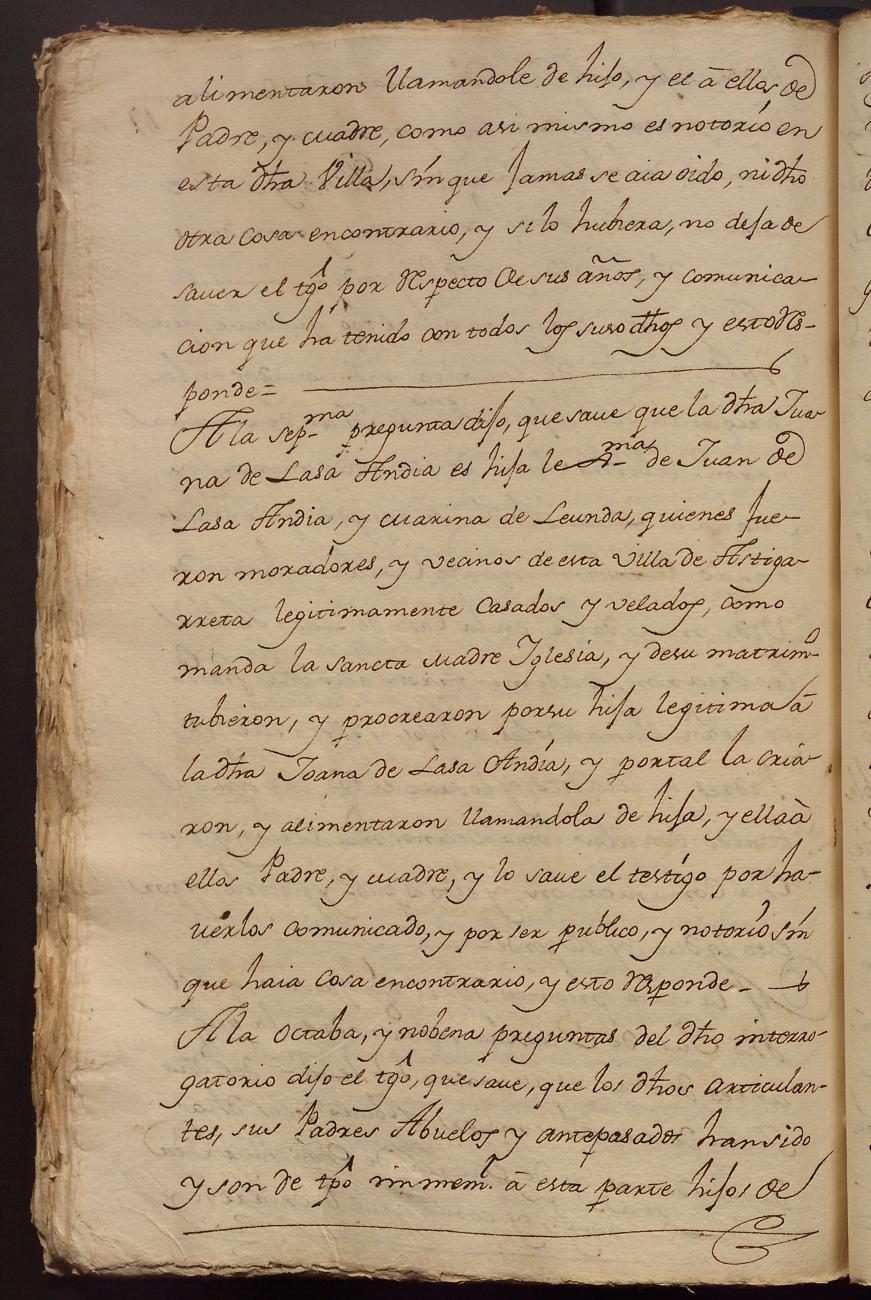 alimentaron llamandole de hijo, y el à ellos de
Padre, y madre, como asi mismo es notorio en
esta dha Villa, sin que jamas se aia oido, ni dho
otra cosa encontrario, y si lo hubiera, no deja de
saver el tgo por Respecto de sus años, y comunica-
cion que ha tenido con todos los suso dhos y esto Res-
ponde=
A la sepma pregunta dijo, que save que la dha Jua-
na de Lasa Andia es hija lexma de Juan de
Lasa Andia, y marina de Leunda, quienes fue-
ron moradores, y vecinos de esta Villa de Astiga-
rreta legitimamente Casados y velados, como
manda la sancta madre Iglesia, y de su matrimo
tubieron, y procrearon por su hija legitima à
la dha Joana de Lasa Andia, y por tal la cria-
ron, y alimentaron llamandola de hija, y ella à
ellos Padre, y madre, y lo save el testigo por ha-
verlos comunicado, y por ser publico, y notorio sin
que haia cosa encontrario, y esto Responde-
A la octaba, y nobena preguntas del dho interro-
gatorio dijo el tgo, que save, que los dhos articulan-
tes, sus Padres Abuelos y antepasados han sido
y son de tpo inmem. à esta parte hijos de